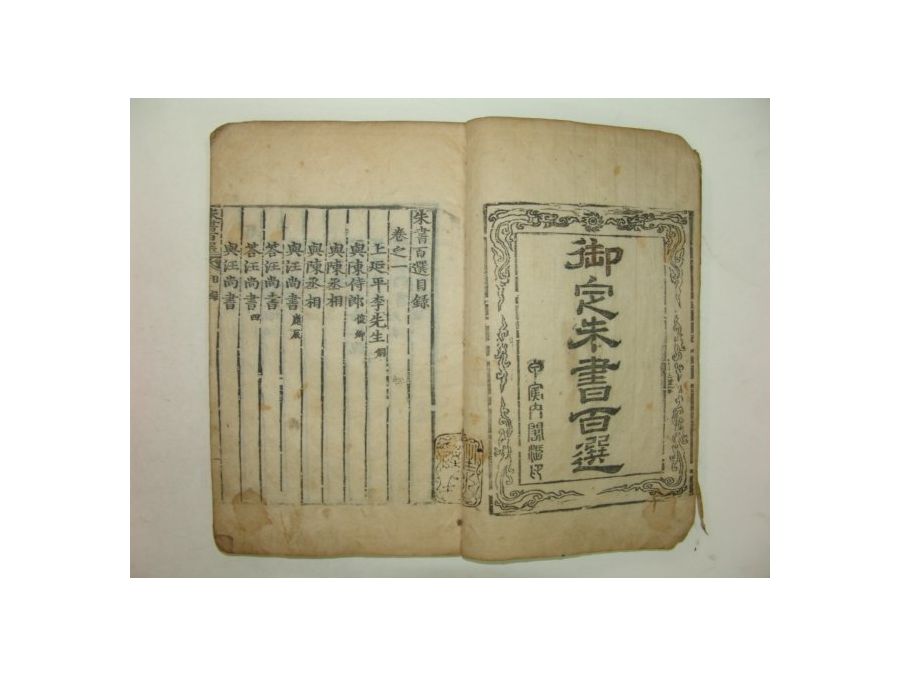 御定朱書百選
甲寅內閣活印
朱書百選目錄
卷之一
上延平李先生 侗
與陳侍郎 俊卿
與陳丞相
與陳丞相
與汪尚書 應辰
答汪尚書
答汪尚書 四
與汪尚書
朱書百選